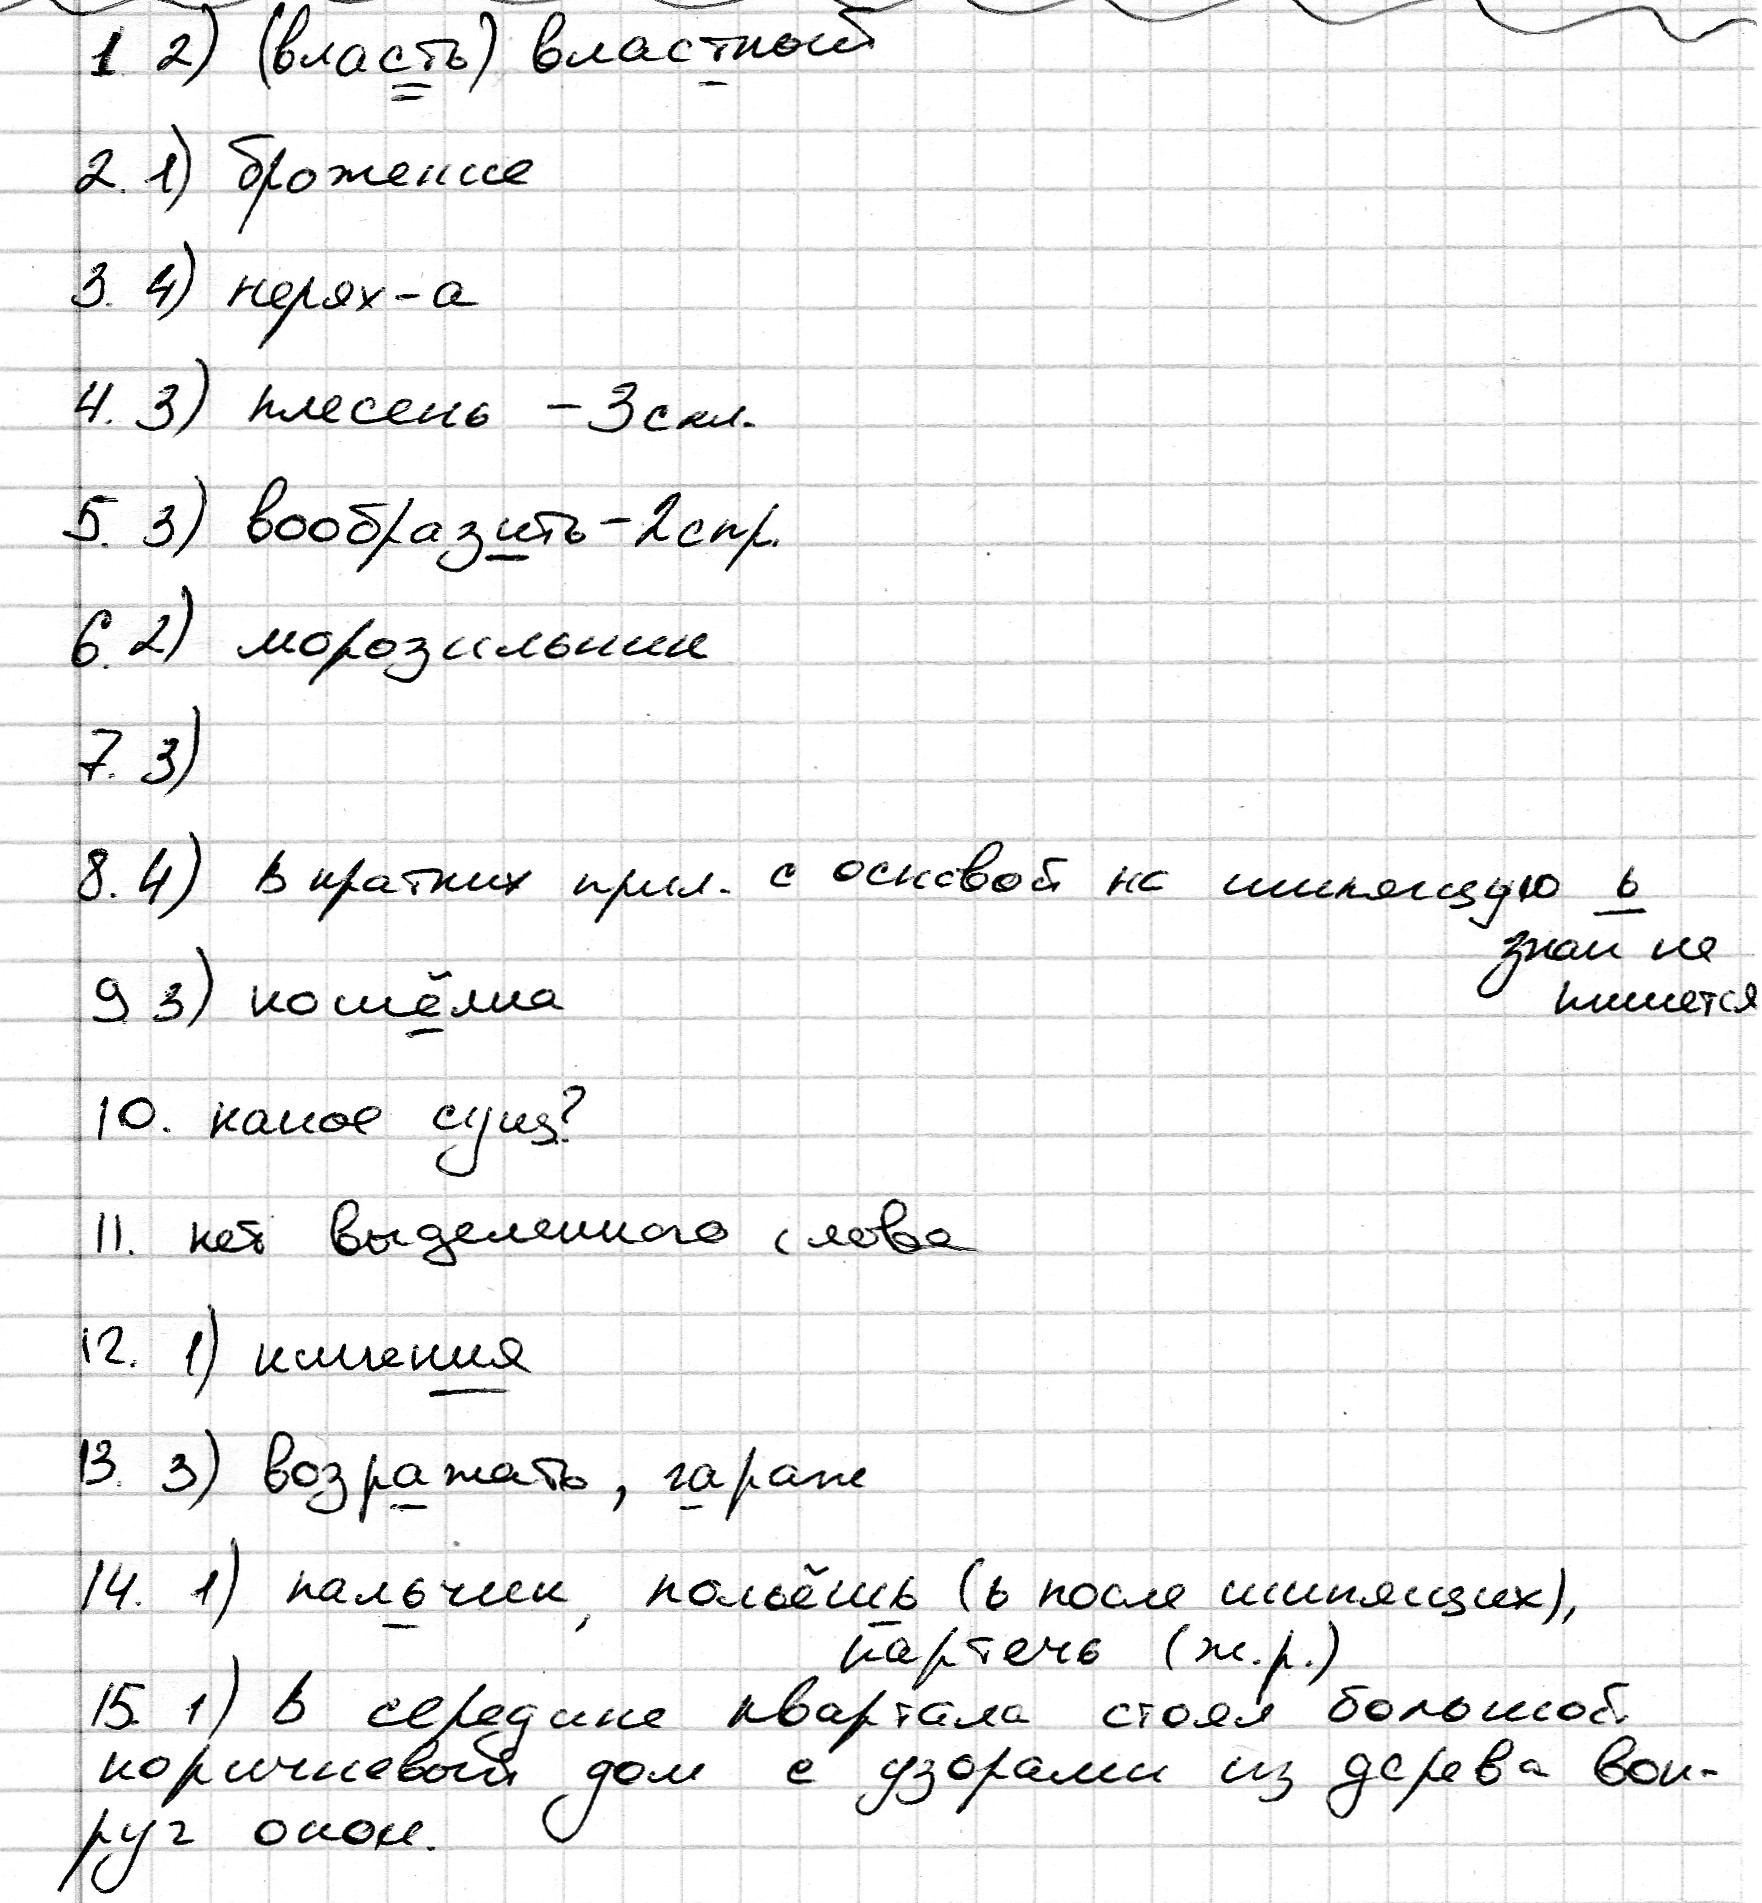 1. 2) (власть) властной
2. 1) брожение
3. 4) нерях-а
4. 3) плесень - 3 скл.
5. 3) вообразить - 2 спр.
6. 2) морозильник
7. 3)
8. 4) в кратких прил. с основой на шипящую ь
знак не
пишется
9 3) кошёлка
10. какое сущ?
11. нет выделенного слова
12. 1) кипения
13. 3) возражать, гараж
14. 1) пальчик, польёшь (ь после шипящих),
картечь (ж.р.)
15. 1) В середине квартала стоял большой
коричневый дом с узорами из дерева вок-
руг окон.